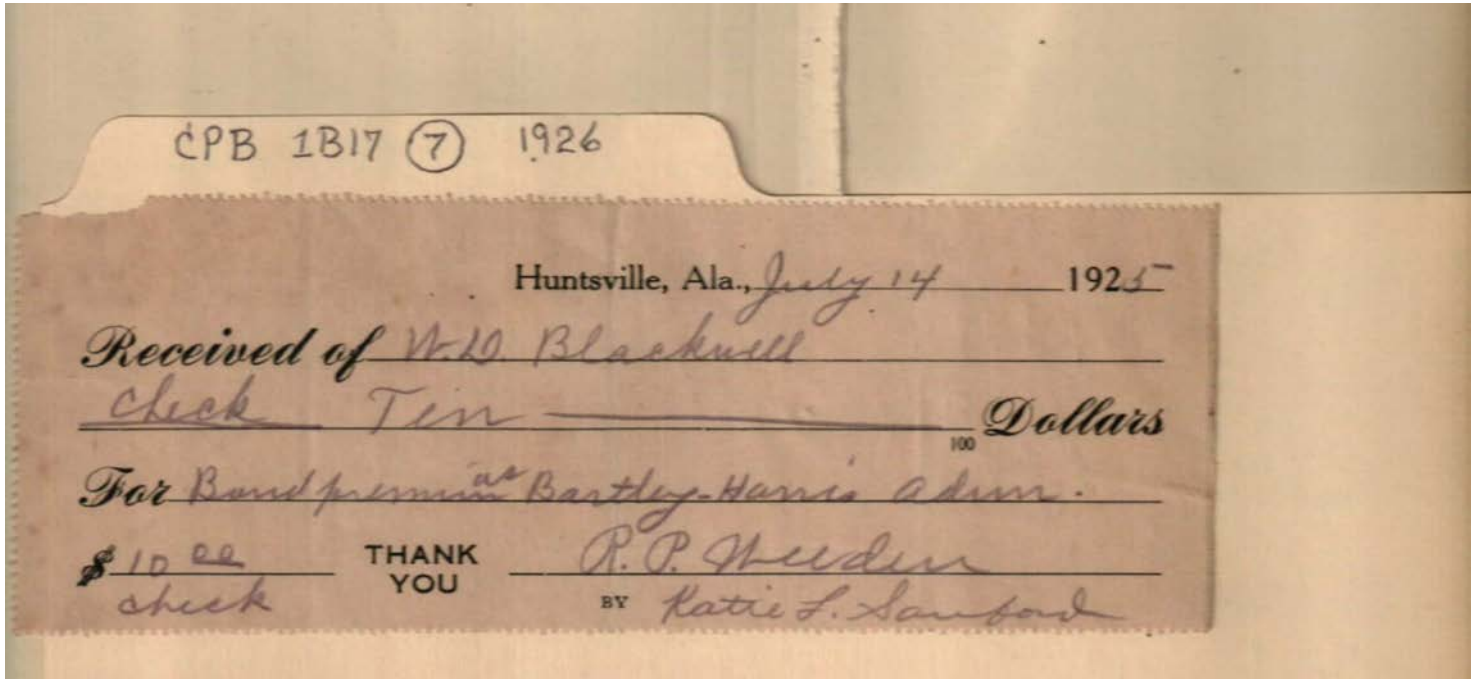 CPB 1B17 7 1926
Huntsville, Ala., July 14 1925
Received of W.D. Blackwell
check Ten 100 Dollars
For Bond premium as Bartley-Harris Admr.
$10 00 THANK YOU R. P. Weeden
check BY Katie L. Sanford